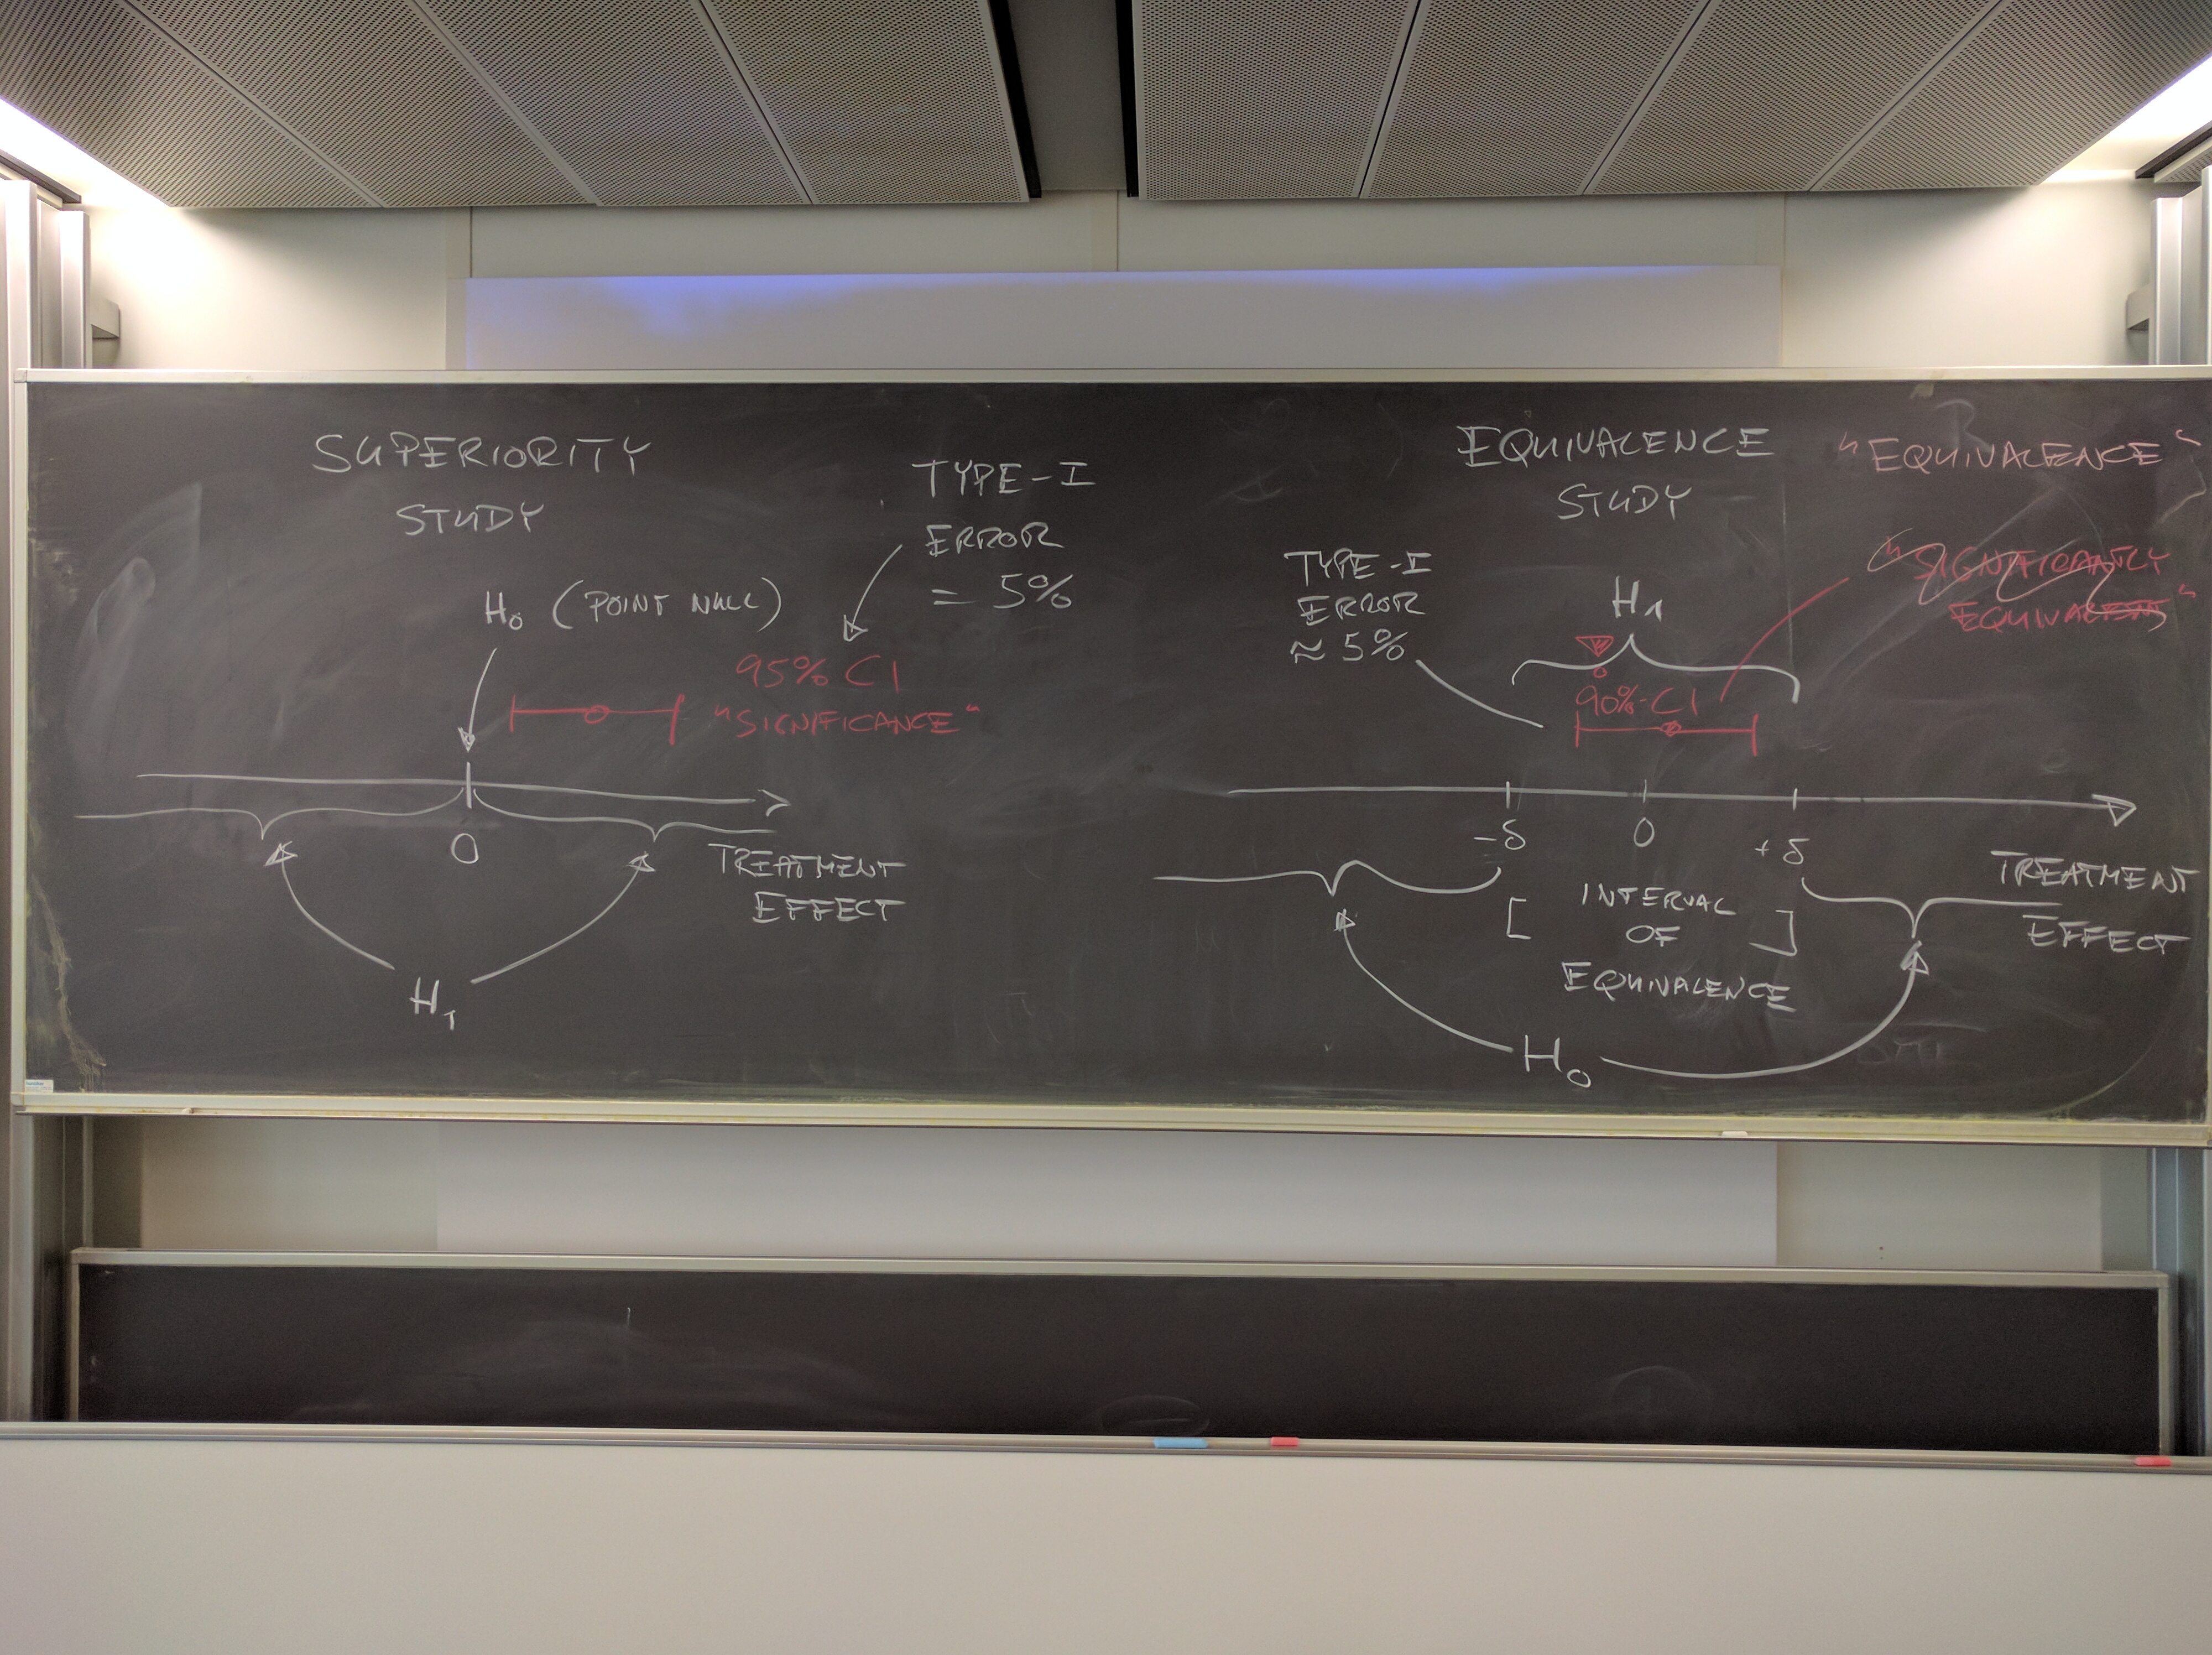 SUPERIORITY
STUDY
TYPE-I
ERROR
= 5%
H₀ (POINT NULL)
95% CI
"SIGNIFICANCE"
0
TREATMENT
EFFECT
H₁
EQUIVALENCE
STUDY
"EQUIVALENCE"
"SIGNIFICANTLY
EQUIVALENT"
TYPE-I
ERROR
≈ 5%
H₁
90%-CI
-δ 0 +δ
TREATMENT
EFFECT
[ INTERVAL
OF ]
EQUIVALENCE
H₀